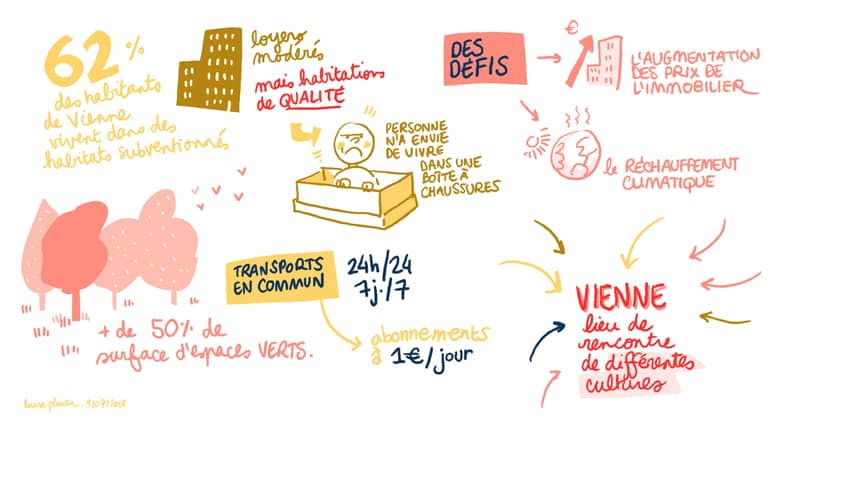 62 %
des habitants
de Vienne
vivent dans des
habitats subventionnés
loyers
modérés
mais habitations
de QUALITÉ
PERSONNE
N'A ENVIE
DE VIVRE
DANS UNE
BOÎTE À
CHAUSSURES
DES
DÉFIS
€
L'AUGMENTATION
DES PRIX DE
L'IMMOBILIER
le RÉCHAUFFEMENT
CLIMATIQUE
+ de 50% de
surface d'espaces VERTS.
TRANSPORTS
EN COMMUN
24h/24
7j./7
abonnements
à 1€/jour
VIENNE
lieu de
rencontre
de différentes
cultures